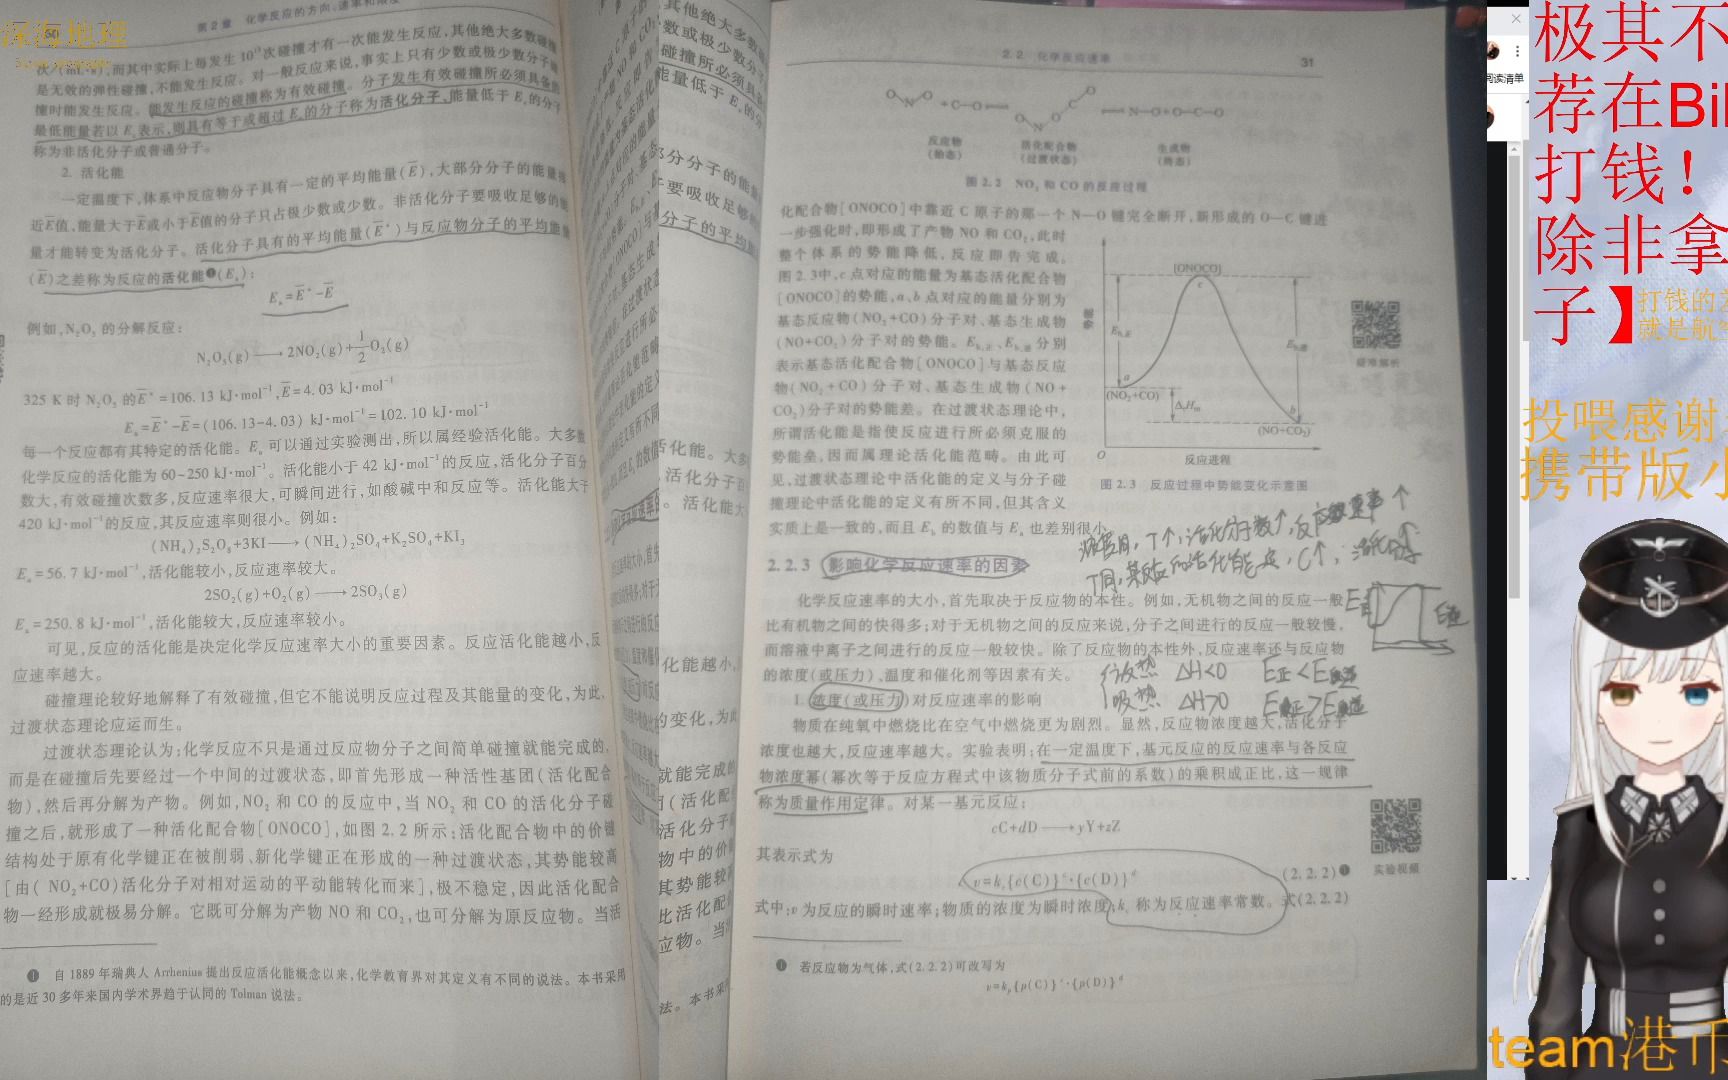 深海地理
第2章 化学反应的方向、速率和限度
次/(mL·s),而其中实际上每发生 次碰撞才有一次能发生反应,其他绝大多数碰撞
是无效的弹性碰撞,不能发生反应。对一般反应来说,事实上只有少数或极少数分子碰
撞时能发生反应。能发生反应的碰撞称为有效碰撞。分子发生有效碰撞所必须具备的
最低能量若以 Ec 表示,则具有等于或超过 Ec 的分子称为活化分子,能量低于 Ec 的分子
称为非活化分子或普通分子。
2. 活化能
一定温度下,体系中反应物分子具有一定的平均能量(E̅),大部分分子的能量接
近E̅值,能量大于E̅或小于E̅值的分子只占极少数或少数。非活化分子要吸收足够的能
量才能转变为活化分子。活化分子具有的平均能量(E̅*)与反应物分子的平均能量
(E̅)之差称为反应的活化能❶(Ea):
Ea=E̅*-E̅
例如,N2O5 的分解反应:
N2O5(g)⟶2NO2(g)+1/2O2(g)
325 K 时 N2O5 的E̅*=106.13 kJ·mol⁻¹,E̅=4.03 kJ·mol⁻¹
Ea=E̅*-E̅=(106.13-4.03) kJ·mol⁻¹=102.10 kJ·mol⁻¹
每一个反应都有其特定的活化能。Ea 可以通过实验测出,所以属经验活化能。大多数
化学反应的活化能为 60~250 kJ·mol⁻¹。活化能小于 42 kJ·mol⁻¹的反应,活化分子百分
数大,有效碰撞次数多,反应速率很大,可瞬间进行,如酸碱中和反应等。活化能大于
420 kJ·mol⁻¹的反应,其反应速率则很小。例如:
(NH4)2S2O8+3KI⟶(NH4)2SO4+K2SO4+KI3
Ea=56.7 kJ·mol⁻¹,活化能较小,反应速率较大。
2SO2(g)+O2(g)⟶2SO3(g)
Ea=250.8 kJ·mol⁻¹,活化能较大,反应速率较小。
可见,反应的活化能是决定化学反应速率大小的重要因素。反应活化能越小,反
应速率越大。
碰撞理论较好地解释了有效碰撞,但它不能说明反应过程及其能量的变化,为此,
过渡状态理论应运而生。
过渡状态理论认为:化学反应不只是通过反应物分子之间简单碰撞就能完成的,
而是在碰撞后先要经过一个中间的过渡状态,即首先形成一种活性基团(活化配合
物),然后再分解为产物。例如,NO2 和 CO 的反应中,当 NO2 和 CO 的活化分子碰
撞之后,就形成了一种活化配合物[ONOCO],如图 2.2 所示;活化配合物中的价键
结构处于原有化学键正在被削弱、新化学键正在形成的一种过渡状态,其势能较高
[由( NO2+CO)活化分子对相对运动的平动能转化而来],极不稳定,因此活化配合
物一经形成就极易分解。它既可分解为产物 NO 和 CO2,也可分解为原反应物。当活
❶ 自 1889 年瑞典人 Arrhenius 提出反应活化能概念以来,化学教育界对其定义有不同的说法。本书采用
的是近 30 多年来国内学术界趋于认同的 Tolman 说法。
其他绝大多
数或极少数分子
碰撞所必须具
能量低于 Ec 的分
部分分子的能量
子要吸收足够
分子的平均
活化能。大多
活化分子百
。活化能大
化能越小,
的变化,为此
就能完成的
(活化配
活化分子
物中的价
其势能较
比活化配
应物。当
法。本书采
2.2 化学反应速率 31
O N O +C—O⇌ O N O C O ⇌N—O+O—C—O
反应物 活化配合物 生成物
(始态) (过渡状态) (终态)
图 2.2 NO2 和 CO 的反应过程
化配合物[ONOCO]中靠近 C 原子的那一个 N—O 键完全断开,新形成的 O—C 键进
一步强化时,即形成了产物 NO 和 CO2,此时
整个体系的势能降低,反应即告完成。
图 2.3中,c 点对应的能量为基态活化配合物
[ONOCO]的势能,a、b 点对应的能量分别为
基态反应物(NO2+CO)分子对、基态生成物
(NO+CO2)分子对的势能。Eb,正、Eb,逆分别
表示基态活化配合物[ONOCO]与基态反应
物(NO2+CO)分子对、基态生成物(NO+
CO2)分子对的势能差。在过渡状态理论中,
所谓活化能是指使反应进行所必须克服的
势能垒,因而属理论活化能范畴。由此可
见,过渡状态理论中活化能的定义与分子碰
撞理论中活化能的定义有所不同,但其含义
实质上是一致的,而且 Eb 的数值与 Ea 也差别很小。
[ONOCO]
c
势能
Eb,正
Eb,逆
a
(NO2+CO)
ΔrHm
b
(NO+CO2)
O 反应进程
图 2.3 反应过程中势能变化示意图
疑难解析
T↑,活化分子数↑,反应速率↑
T同,某反应的活化能定,C↑,活化分子↑
2.2.3 影响化学反应速率的因素
化学反应速率的大小,首先取决于反应物的本性。例如,无机物之间的反应一般
比有机物之间的快得多;对于无机物之间的反应来说,分子之间进行的反应一般较慢,
而溶液中离子之间进行的反应一般较快。除了反应物的本性外,反应速率还与反应物
的浓度(或压力)、温度和催化剂等因素有关。
E正 E逆
放热 ΔH<0 E正<E逆
吸热 ΔH>0 E正>E逆
1. 浓度(或压力)对反应速率的影响
物质在纯氧中燃烧比在空气中燃烧更为剧烈。显然,反应物浓度越大,活化分子
浓度也越大,反应速率越大。实验表明:在一定温度下,基元反应的反应速率与各反应
物浓度幂(幂次等于反应方程式中该物质分子式前的系数)的乘积成正比,这一规律
称为质量作用定律。对某一基元反应:
cC+dD⟶yY+zZ
其表示式为
v=kc{c(C)}ᶜ·{c(D)}ᵈ (2.2.2)❶
实验视频
式中:v 为反应的瞬时速率;物质的浓度为瞬时浓度;kc 称为反应速率常数。式(2.2.2)
❶ 若反应物为气体,式(2.2.2)可改写为
v=kp{p(C)}ᶜ·{p(D)}ᵈ
阅读清单
极其不
荐在Bil
打钱!
除非拿
子】
打钱的
就是航空
投喂感谢
携带版小
team港币